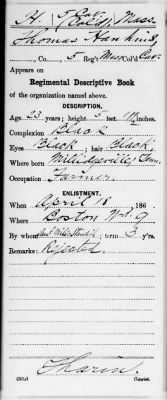 H. 5 Col'd Mass.
Thomas Hankins
, Co. 5 Reg't Mass. Col'd Cav.
Appears on
Regimental Descriptive Book
of the organization named above.
DESCRIPTION.
Age 23 years; height 5 feet inches
Complexion Black
Eyes Black; hair Black
Where born
Occupation Farmer
ENLISTMENT.
When April 18, 186
Where Boston
By whom; term 3 y'rs.
Remarks: Rejected
Copyist.